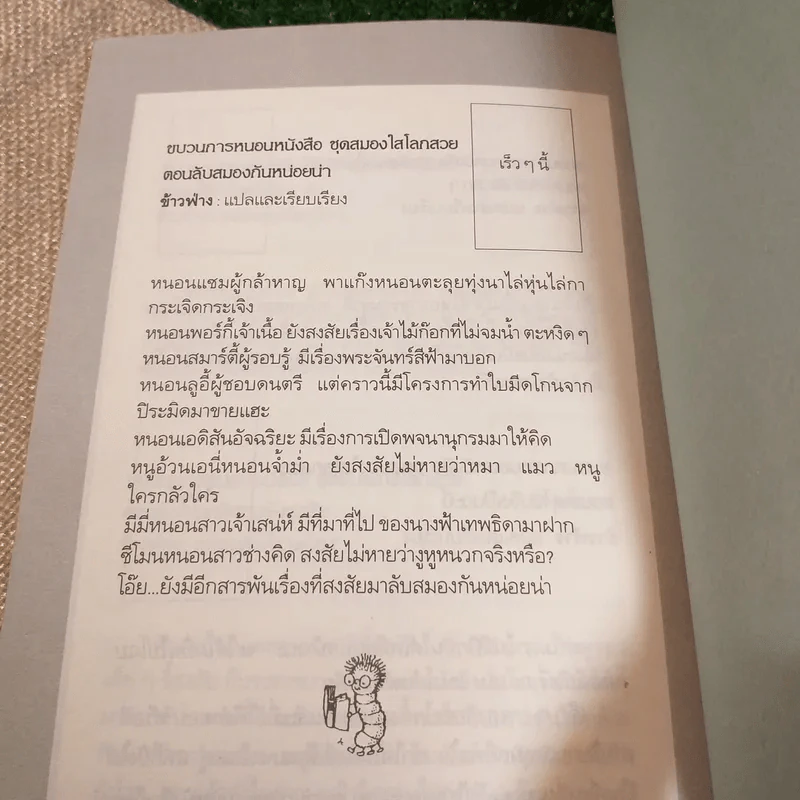 ขบวนการหนอนหนังสือ ชุดสมองใสโลกสวย
ตอนลับสมองกันหน่อยน่า
ข้าวฟ่าง : แปลและเรียบเรียง
เร็ว ๆ นี้
หนอนแซมผู้กล้าหาญ พาแก๊งหนอนตะลุยทุ่งนาไล่หุ่นไล่กา
กระเจิดกระเจิง
หนอนพอร์กี้เจ้าเนื้อ ยังสงสัยเรื่องเจ้าไม้ก๊อกที่ไม่จมน้ำ ตะหงิด ๆ
หนอนสมาร์ตี้ผู้รอบรู้ มีเรื่องพระจันทร์สีฟ้ามาบอก
หนอนลูอี้ผู้ชอบดนตรี แต่คราวนี้มีโครงการทำใบมีดโกนจาก
ปิระมิดมาขายแฮะ
หนอนเอดิสันอัจฉริยะ มีเรื่องการเปิดพจนานุกรมมาให้คิด
หนูอ้วนเอนี่หนอนจ้ำม่ำ ยังสงสัยไม่หายว่าหมา แมว หนู
ใครกลัวใคร
มีมี่หนอนสาวเจ้าเสน่ห์ มีที่มาที่ไป ของนางฟ้าเทพธิดามาฝาก
ซีโมนหนอนสาวช่างคิด สงสัยไม่หายว่างูหูหนวกจริงหรือ?
โอ๊ย...ยังมีอีกสารพันเรื่องที่สงสัยมาลับสมองกันหน่อยน่า